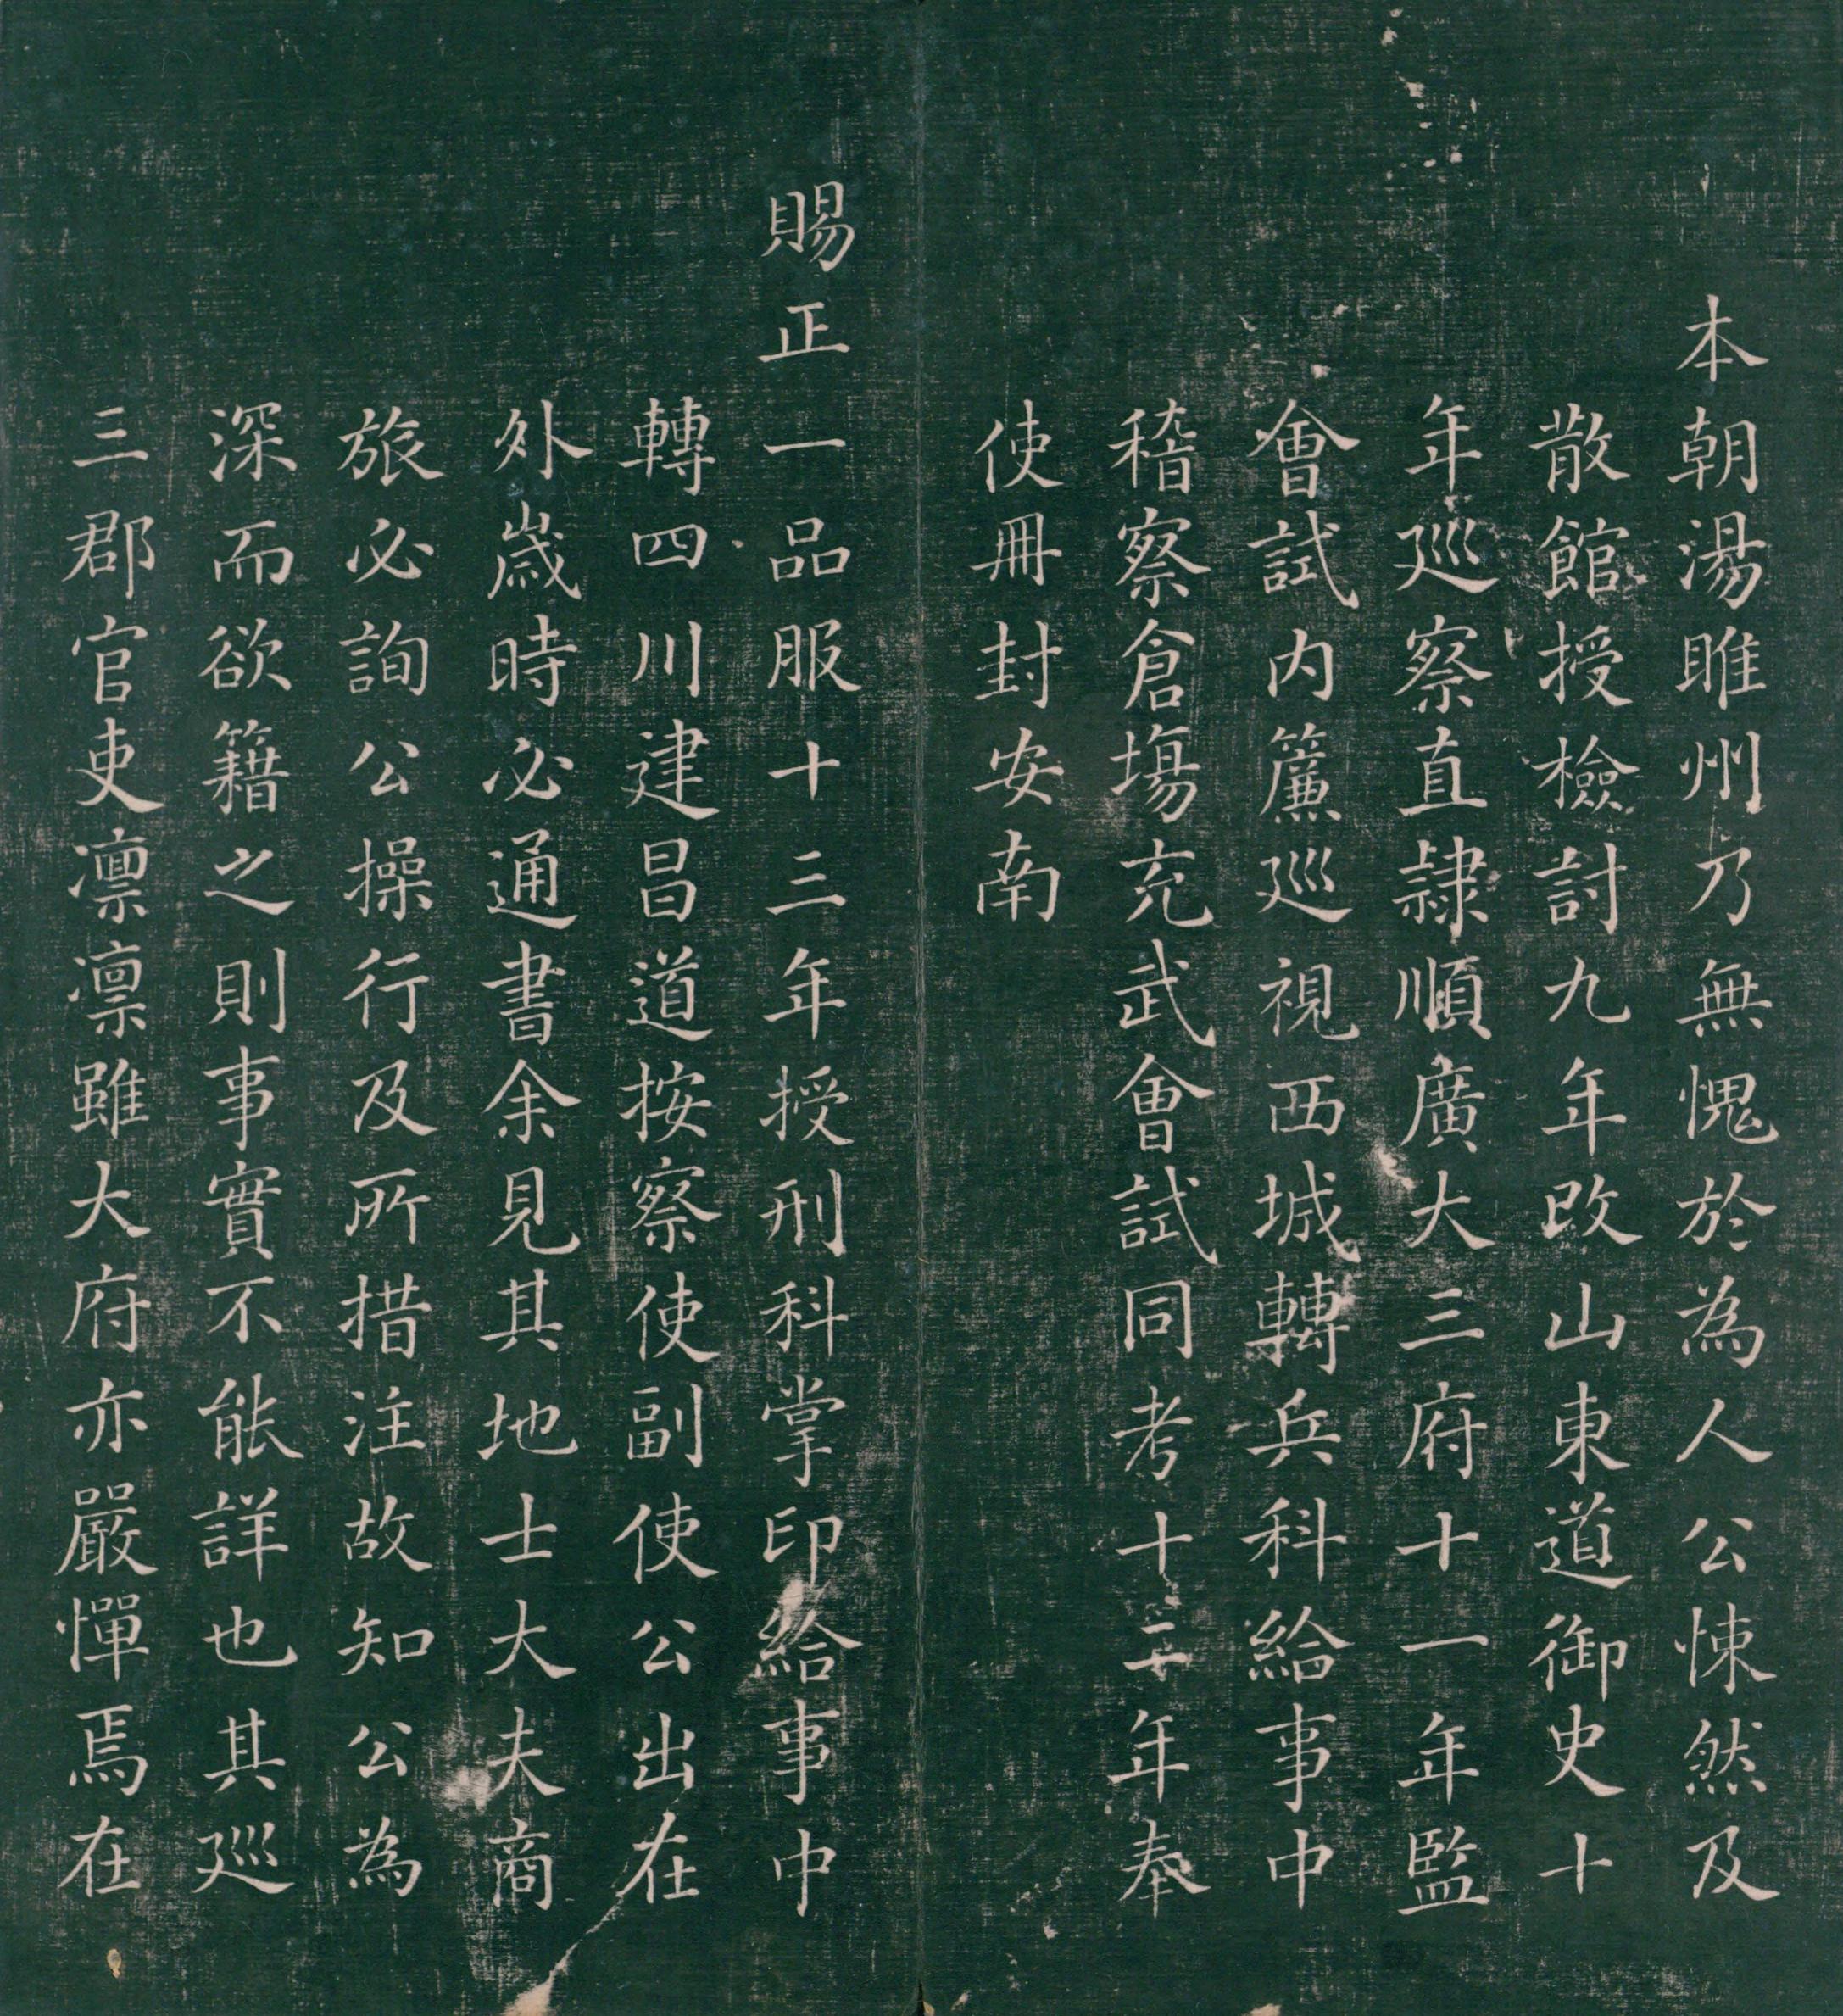 本朝湯睢州乃無愧於為人公悚然及
散館授檢討九年改山東道御史十
年巡察直隷順廣大三府十一年監
會試内簾巡視西城轉兵科給事中
稽察倉場充武會試同考十二年奉
使冊封安南
賜正一品服十三年授刑科掌印給事中
轉四川建昌道按察使副使公出在
外歲時必通書余見其地士大夫商
旅必詢公操行及所措注故知公為
深而欲籍之則事實不能詳也其巡
三郡官吏凛凛雖大府亦嚴憚焉在